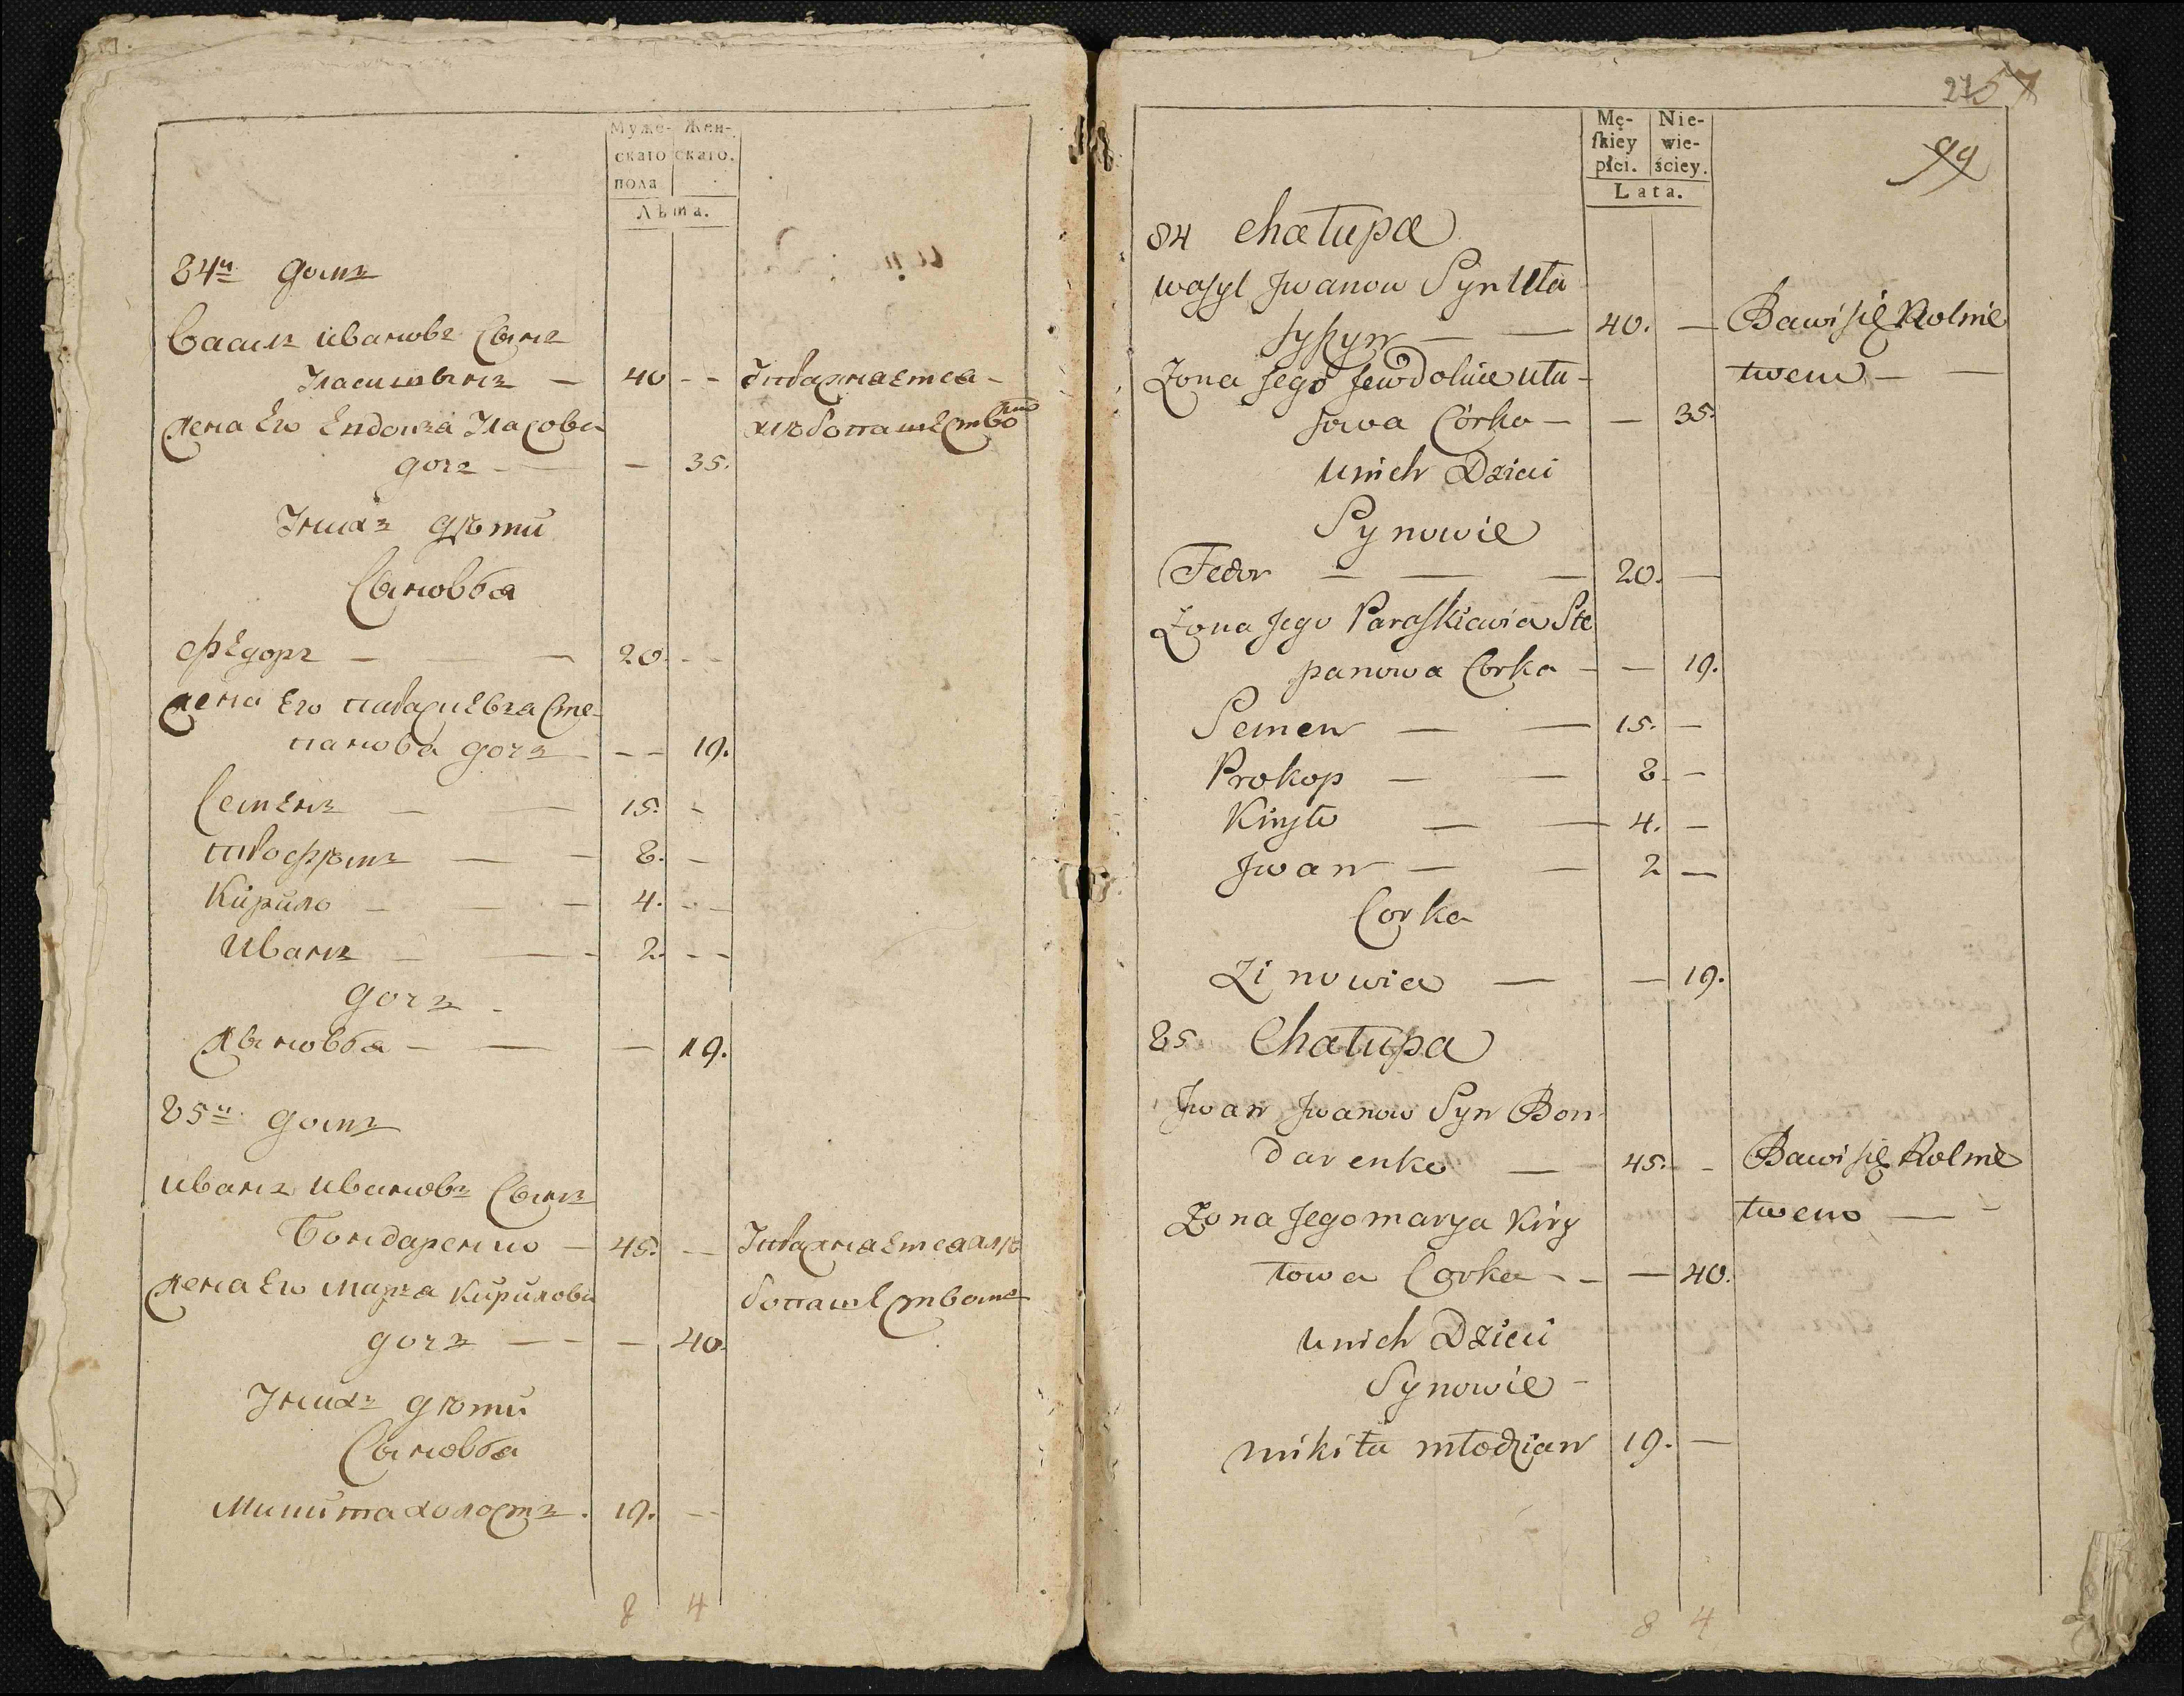 Муже-
скаго
пола
Жен-
скаго.
Лѣта.
84й домъ
Василь Ивановъ Сынъ
40 - -
жена Его Евдокиа Власова
дочь - - 35.
У нихъ дѣти
Сыновья
Федоръ - - - 20. - -
жена Его Параскевиа Сте-
панова дочь - - 19.
Семенъ - - 15. -
8. -
Кирило - - - 4. - -
Иванъ - - - 2. - -
дочь -
Зѣновья - - - 19.
85й домъ
Иванъ Ивановъ Сынъ
Бондаренко - 45. - Упражняется хлѣ
жена Его Мариа Кирилова
бопашествомъ
дочь - - - 40.
У нихъ дѣти
Сыновья
Микита холостъ . 19. - -
8 4
275
99
Mę-
skiey
płci.
Nie-
wie-
ściey.
Lata.
84 Chałupa
Wasyl Jwanow Syn Uła
40. - Bawi się Rolnic
Zona Jego Jewdokiie Uła-
twem - -
sowa Córka - - 35.
U nich Dzieci
Synowie
Fedor - - - 20. -
Zona Jego Paraskiewia Ste
panowa Corka - - 19.
Semen - - 15. -
Prokop - - 8. -
Kiryło - - 4. -
Jwan - - 2 -
Corka
Zinowia - - 19.
85 Chałupa
Jwan Jwanow Syn Bon-
darenko - - 45. - Bawi się Rolnic
Zona Jego Marya Kiry
twem - -
łowa Corka - - - 40.
U nich Dzieci
Synowie -
Mikita młodzian 19. -
8 4